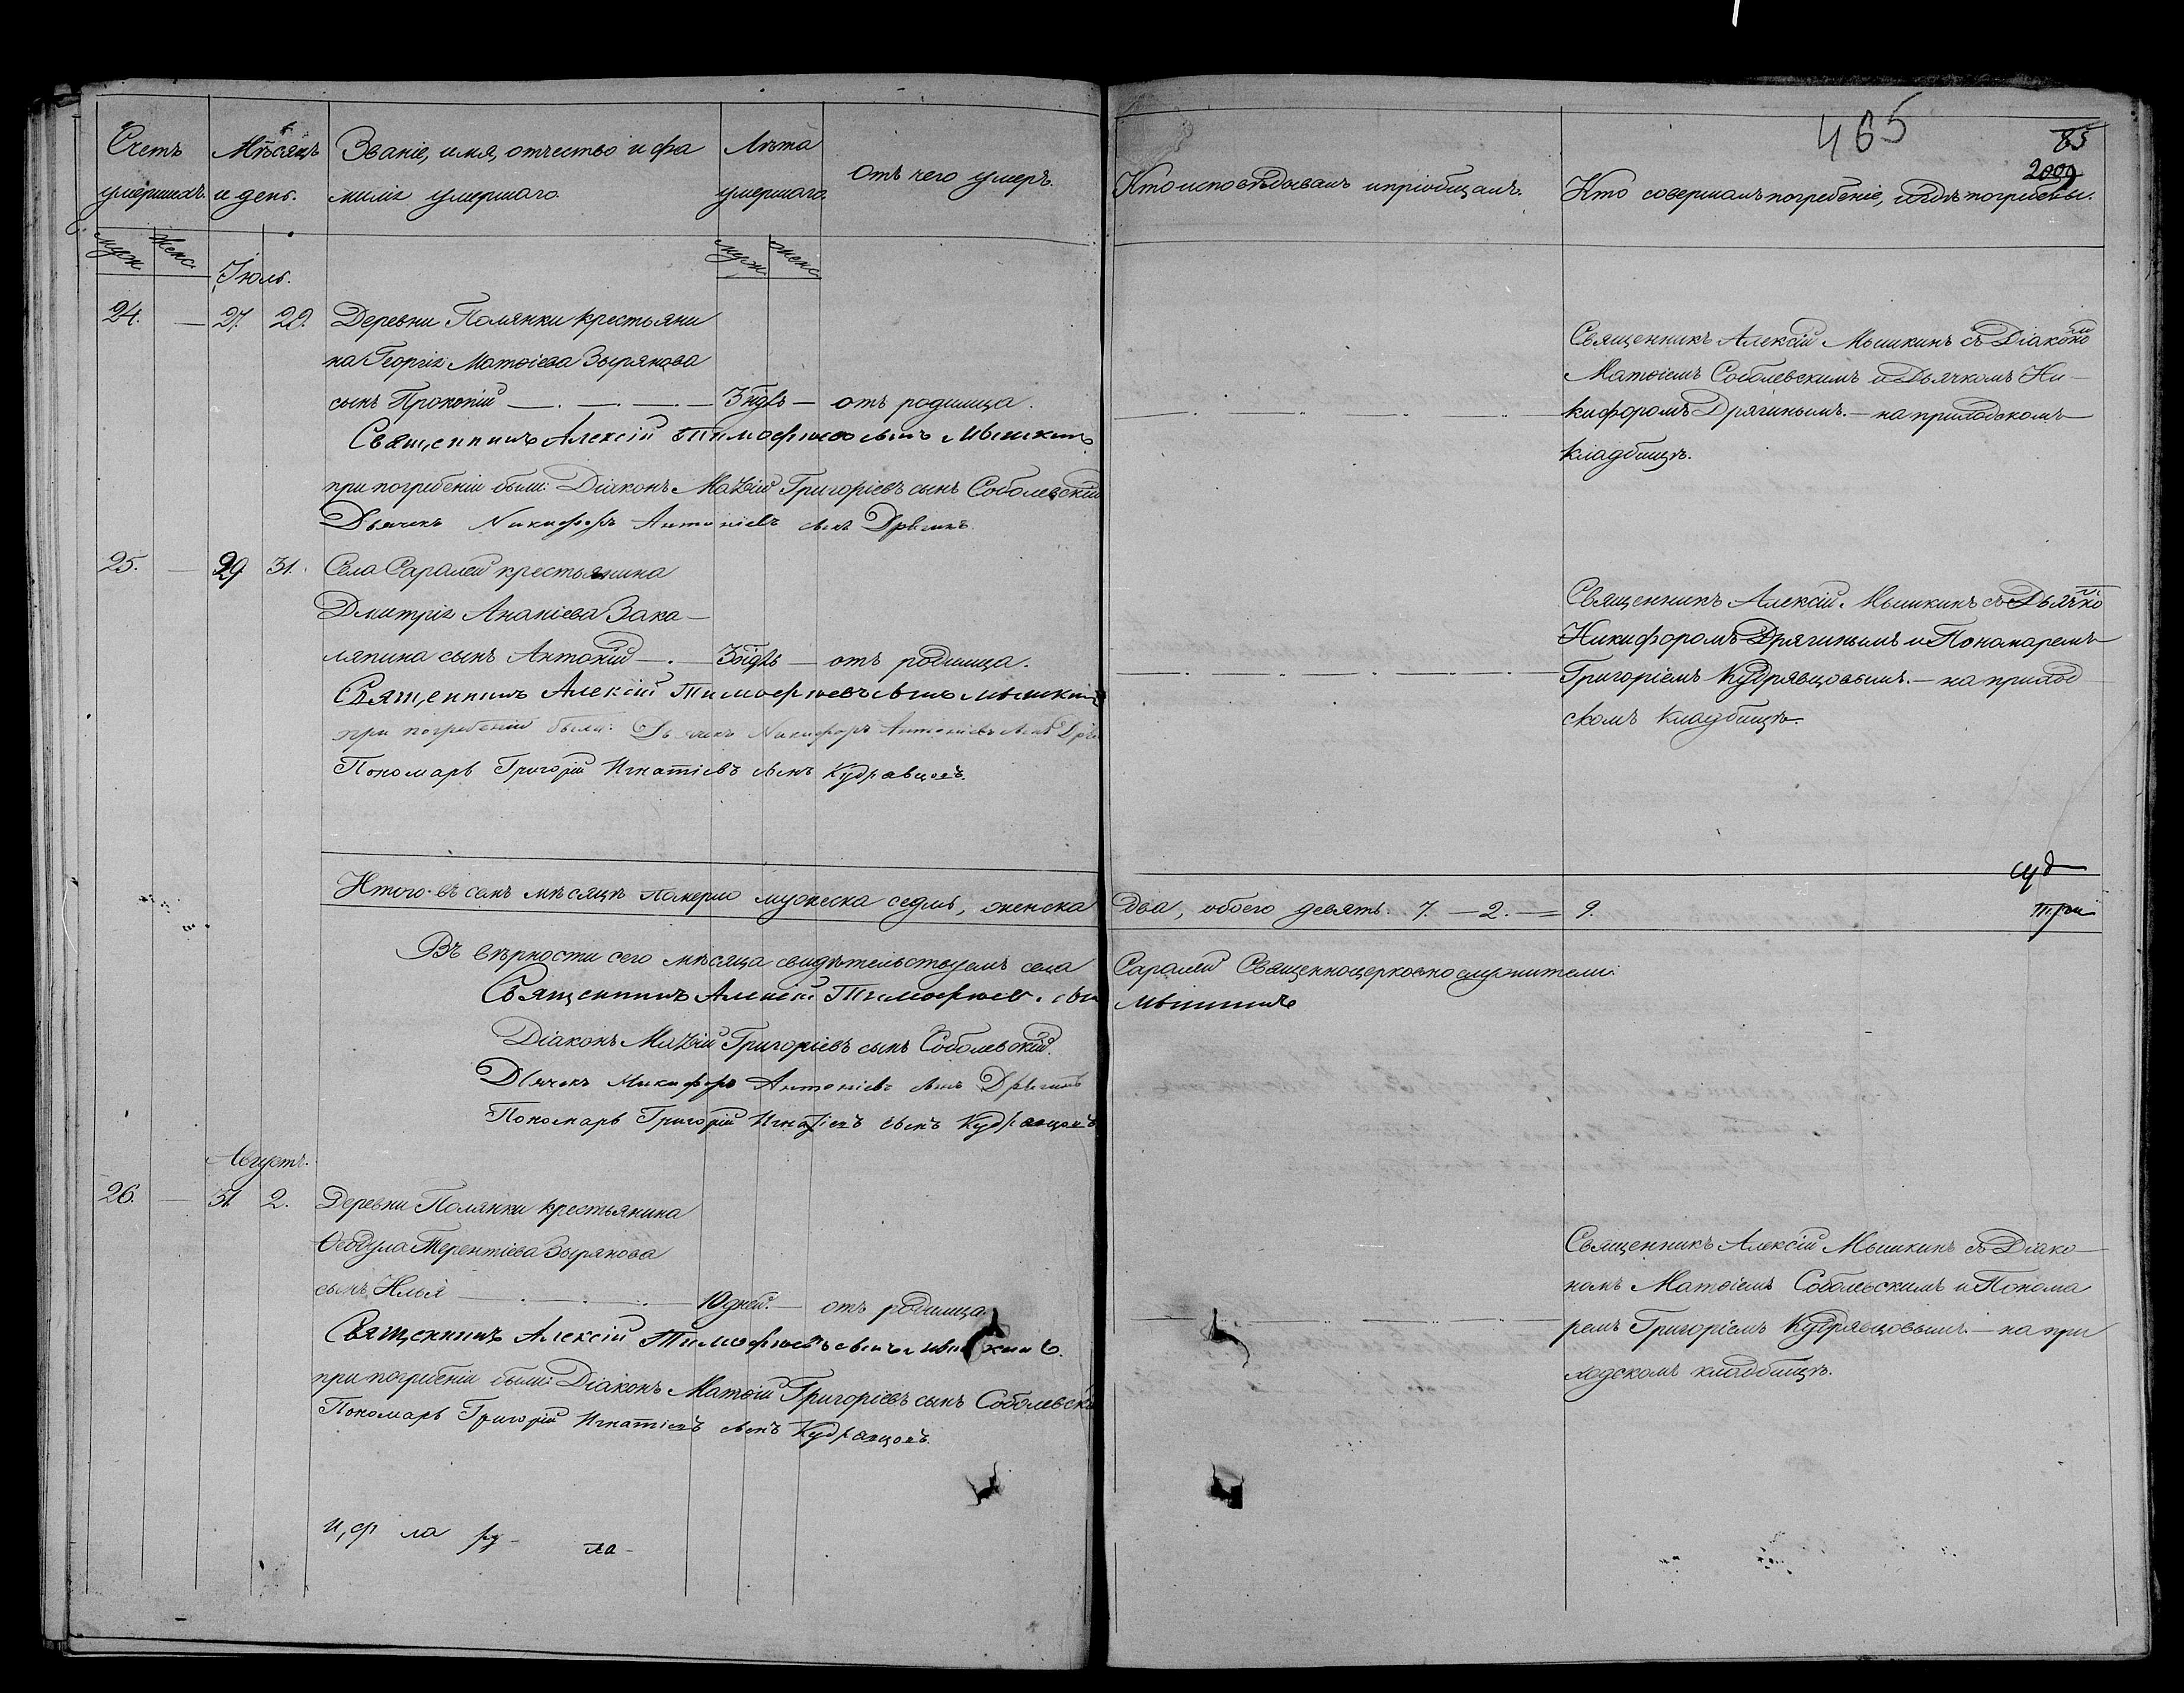 465
85
2009
Счетъ умершихъ.
Мѣсяцъ и день.
Званіе, имя, отчество и фа
милія умершаго.
Лѣта умершаго.
Отъ чего умеръ.
Кто исповѣдывалъ и пріобщалъ.
Кто совершалъ погребеніе, и гдѣ погребены.
муж. женс.
муж. женс.
Іюль.
24. — 27. 29. Деревни Полянки крестьяни
на Георгія Матѳіева Зырянова
сынъ Прокопій — . — . — отъ родимца.
Священникъ Алексій Тимофѣевъ сынъ Мышкинъ
при погребеніи были: Діаконъ Матѳій Григоріевъ сынъ Соболевскій
Дьячекъ Никифоръ Антоніевъ сынъ Дрягинъ.
Священникъ Алексій Мышкинъ съ Діакономъ
Матѳіемъ Соболевскимъ и Дьячкомъ Ни-
кифоромъ Дрягинымъ. — на приходскомъ
кладбищѣ.
25. — 29 31. Села Саралей крестьянина
Дмитрія Ананіева Зака-
ляпина сынъ Антоній — . — отъ родимца.
Священникъ Алексій Тимофѣевъ сынъ Мышкинъ
при погребеніи были: Дьячекъ Никифоръ Антоніевъ сынъ
Пономарь Григорій Игнатіевъ сынъ Кудрявцовъ.
Священникъ Алексій Мышкинъ съ Дьячко
Никифоромъ Дрягинымъ и Пономаремъ
Григоріемъ Кудрявцовымъ. — на приход
скомъ кладбищѣ.
Итого въ семъ мѣсяцѣ померло мужеска седмь, женска два, обоего девять. 7. — 2. — 9.
три
Въ вѣрности сего мѣсяца свидѣтельствуемъ села Саралей Священноцерковнослужители:
Священникъ Алексій Тимофѣев. сын Мышкинъ
Діаконъ Матѳій Григоріевъ сынъ Соболевскій.
Дьячекъ Никифоръ Антоніевъ сынъ Дрягинъ
Пономарь Григорій Игнатіевъ сынъ Кудрявцовъ
Августъ.
26. — 31. 2. Деревни Полянки крестьянина
Ѳеодула Терентіева Зырянова
сынъ Илья — . — 10 дней. — отъ родимца
Священникъ Алексій Тимофѣевъ сынъ Мышкинъ.
при погребеніи были: Діаконъ Матѳій Григоріевъ сынъ Соболевскі
Пономарь Григорій Игнатіевъ сынъ Кудрявцовъ.
Священникъ Алексій Мышкинъ съ Діако-
номъ Матѳіемъ Соболевскимъ и Понома
ремъ Григоріемъ Кудрявцовымъ — на при
ходскомъ кладбищѣ.
ла ру- ла-